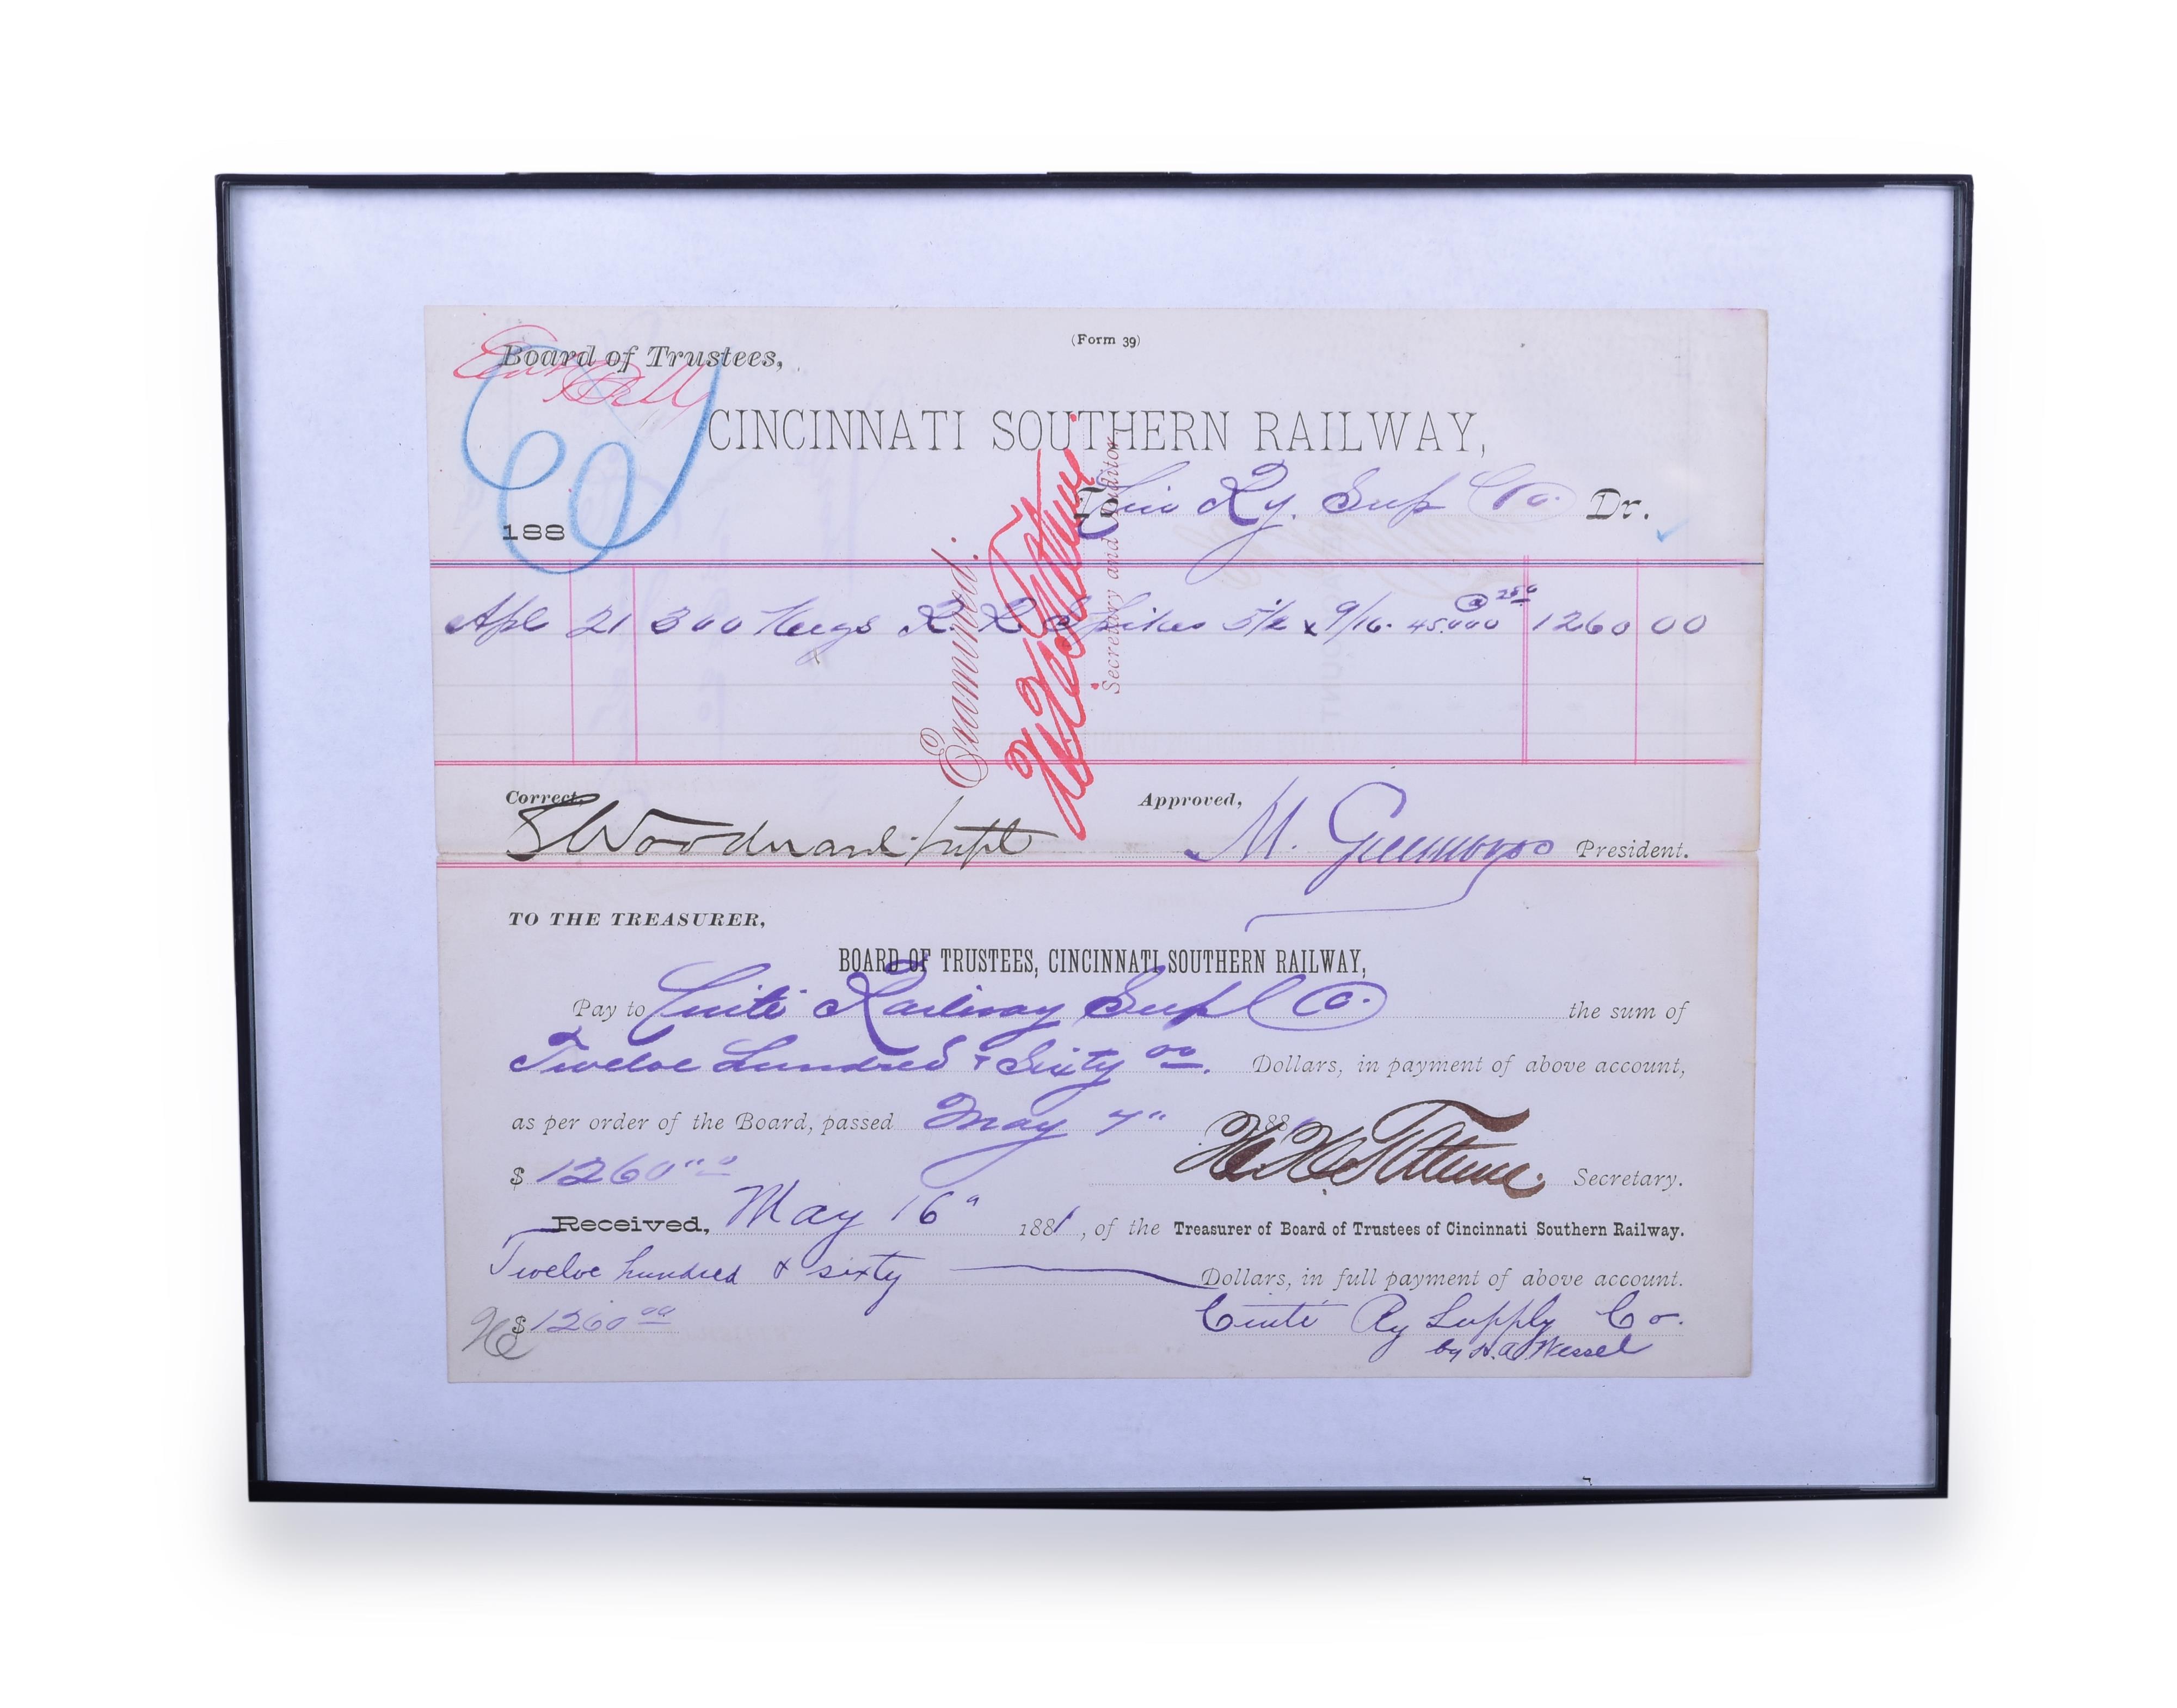 (Form 39)
Board of Trustees,
CINCINNATI SOUTHERN RAILWAY,
188
To Cin Ry. Sup Co. Dr.
Apl 21 300 Kegs R R Spikes 5½ x 9/16. 45.000 @ 2 80 1260 00
Examined.
Secretary and Auditor
Correct,
Approved,
Woodward Supt
M. Greenwood President.
TO THE TREASURER,
BOARD OF TRUSTEES, CINCINNATI SOUTHERN RAILWAY,
Pay to Cinti Railway Supl Co. the sum of
Twelve Hundred & Sixty 00. Dollars, in payment of above account,
as per order of the Board, passed May 7" 188
$ 1260 00
Secretary.
Received, May 16" 1881, of the Treasurer of Board of Trustees of Cincinnati Southern Railway.
Twelve hundred & sixty Dollars, in full payment of above account.
$ 1260 00
Cinti Ry Supply Co.
by H.A. Wessel